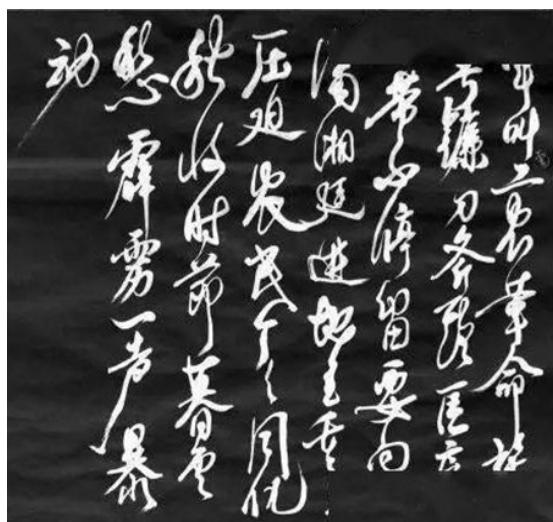 军叫工农革命旗
号镰刀斧头匡庐
带不停留要向
潇湘直进地主重々
压迫农民个々同仇
秋收时节暮云
愁霹雳一声暴
动